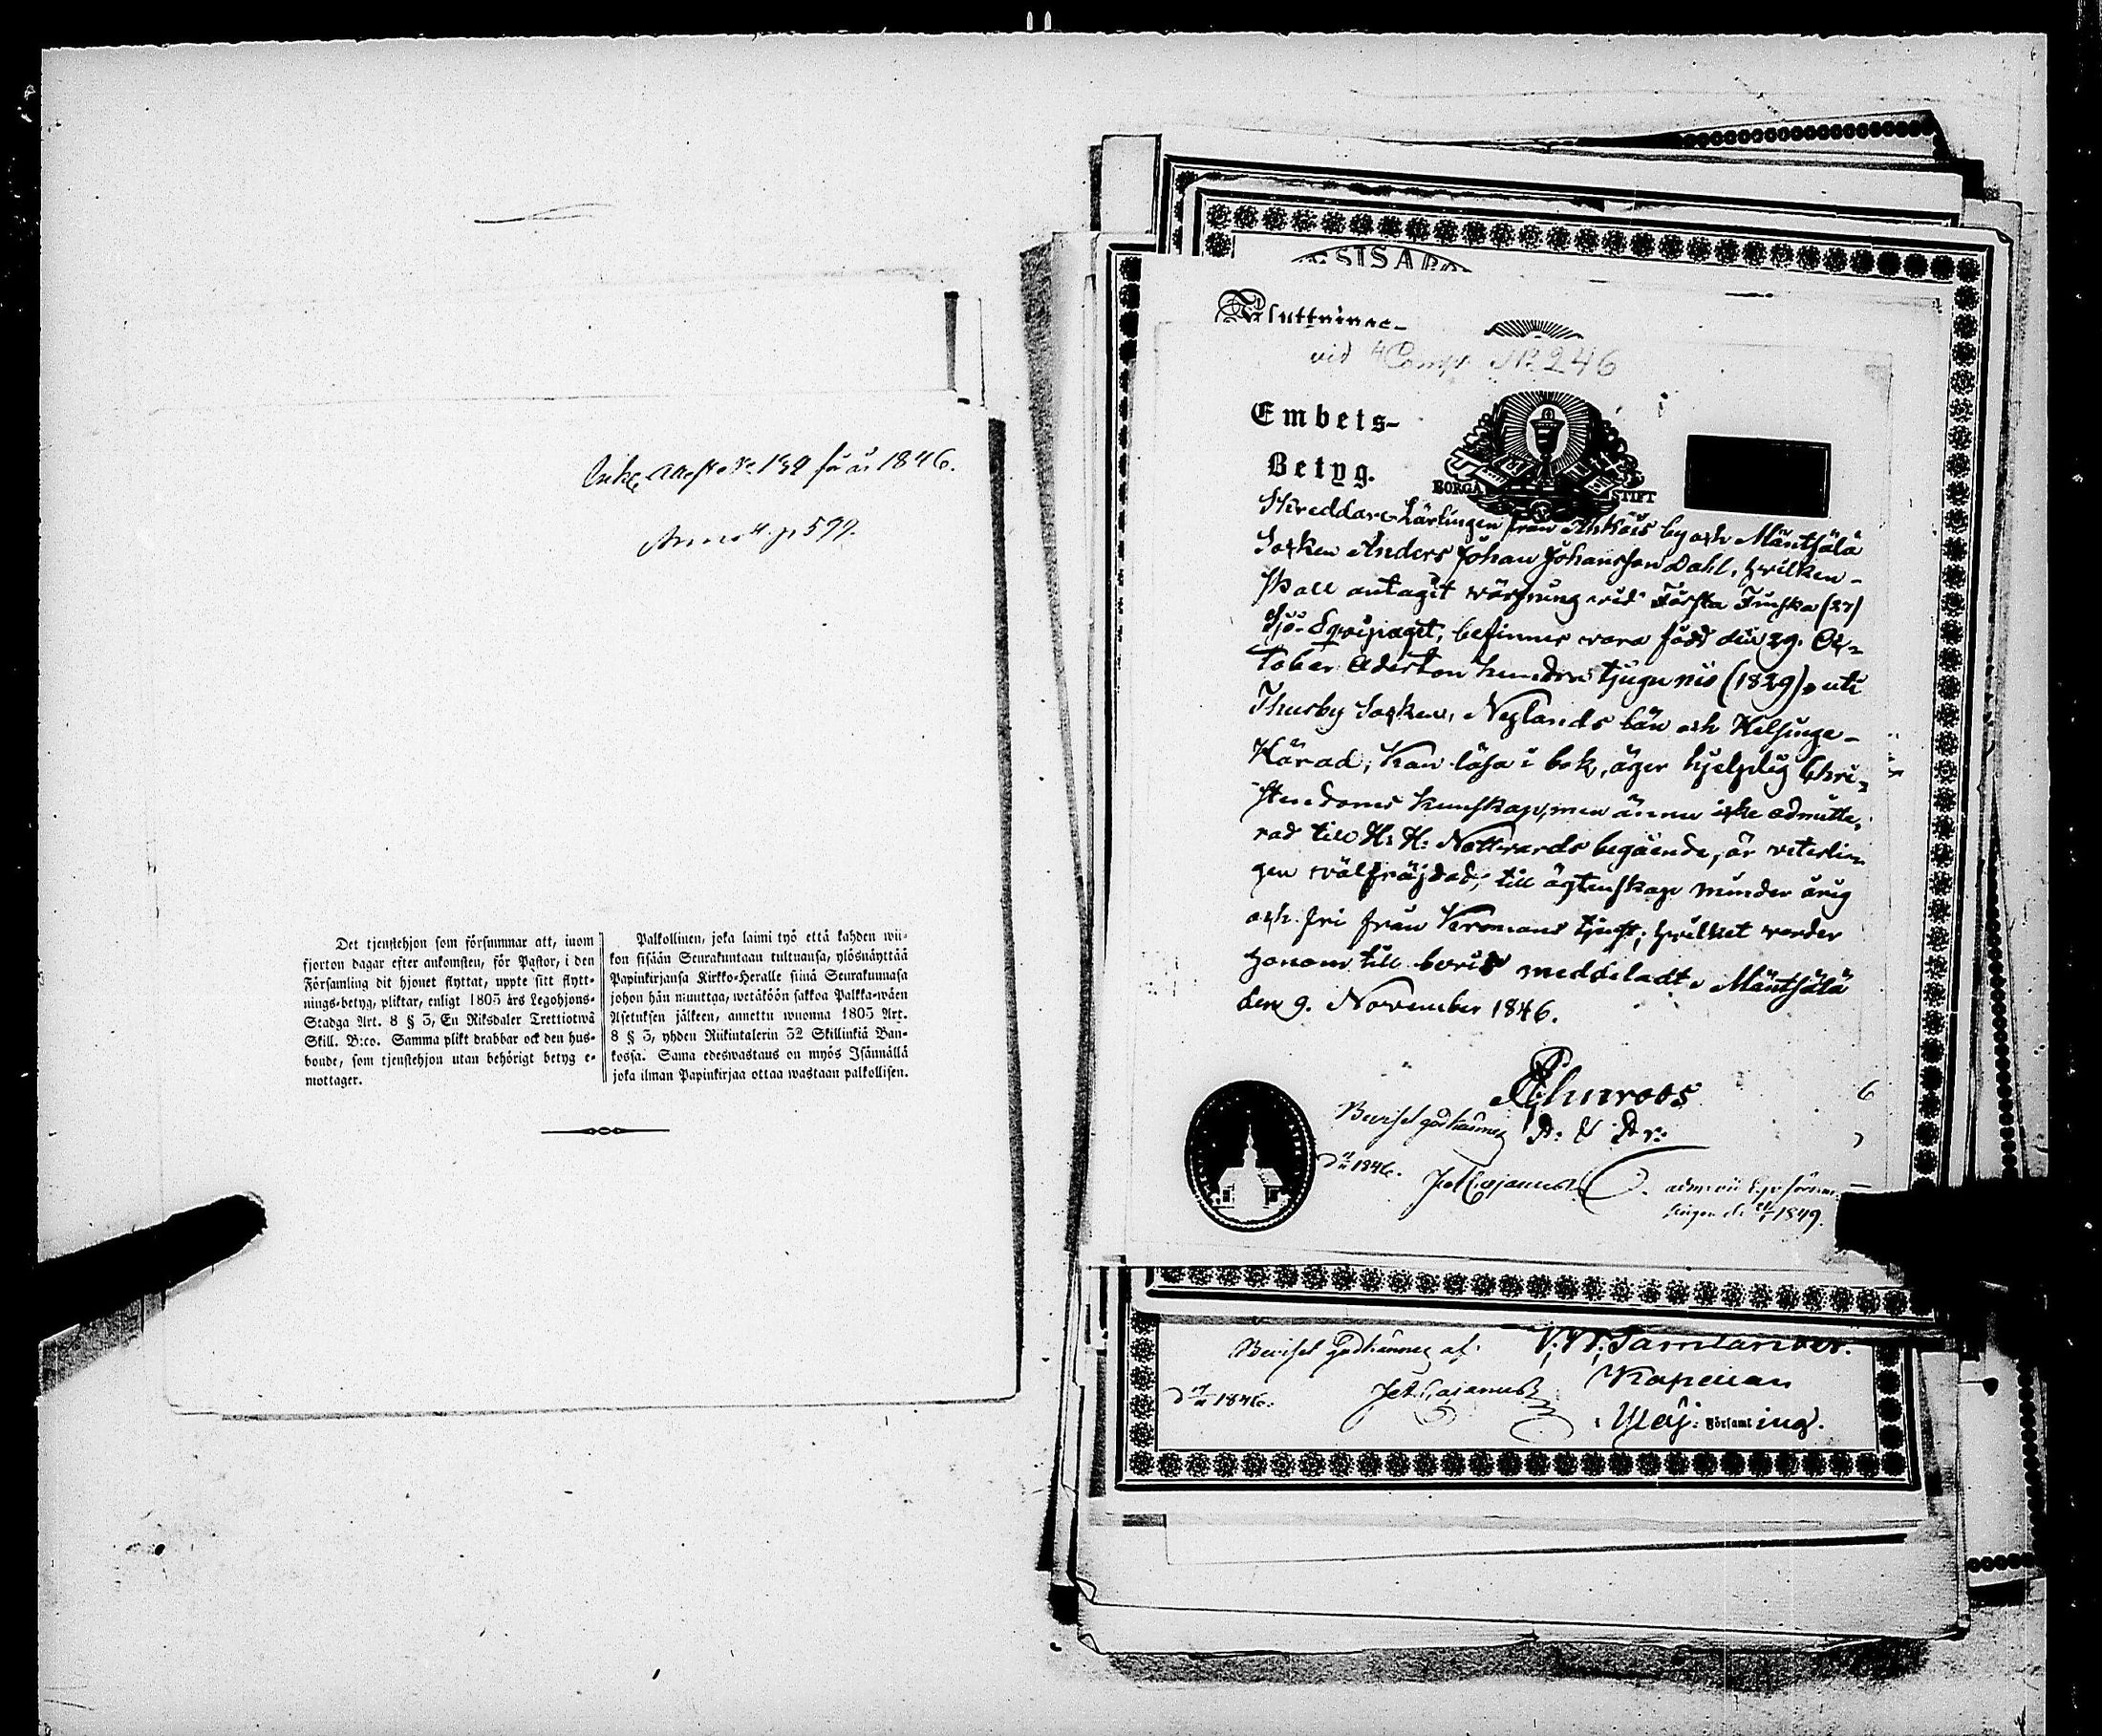 Inkg. Attest No 139 för år 1846.
Annot. p 599.
Det tjenstehjon som försummar att, inom
fjorton dagar efter ankomsten, för Pastor, i den
Församling dit hjonet flyttat, uppte sitt flytt-
nings-betyg, pliktar, enligt 1805 års Legohjons-
Stadga Art. 8 § 3, En Riksdaler Trettiotwå
Skill. B:co. Samma plikt drabbar ock den hus-
bonde, som tjenstehjon utan behörigt betyg e-
mottager.
Palkollinen, joka laimi työ että kahden wii-
kon sisään Seurakuntaan tultuansa, ylösnäyttää
Papinkirjansa Kirkko-Heralle siinä Seurakunnasa
johon hän muuttaa, wetäköön sakkoa Palkka-wäen
Asetuksen jälkeen, annettu wuonna 1805 Art.
8 § 3, yhden Riikintalerin 32 Skillinkiä Ban-
kossa. Sama edeswastaus on myös Isännällä
joka ilman Papinkirjaa ottaa wastaan palkollisen.
SISARO
Flyttnings-
vid 4 Comp. No 246
Embets-
Betyg.
BORGÅ STIFT
Skreddare Lärlingen från by och Mäntsälä
Socken Anders Johan Johansson Dahl, hvilken
skall antagit värfning vid Första Finska (27)
Sjö-Equipaget, befinnes vara född den 29. Oc-
tober Aderton hundra tjugu nio (1829), uti
Thusby Socken, Nylands län och Helsinge-
Härad, kan läsa i bok, äger hjelplig Chri-
stendoms kunskap, men ännu icke admitte-
rad till H: H: Nattvards begående, är veterlin-
gen välfräjdad, till ägtenskap minder årig
och fri från Kronans tjenst; hvilket varder
honom till bevis meddeladt. Mäntsälä
den 9. November 1846.
Ahnroos
Beviset godkännes
1846. Joh Cajanus
1849.
6
Beviset godkännes af. V: W: Tamlander.
1846. Joh Cajanus Kapellan
i Församling.